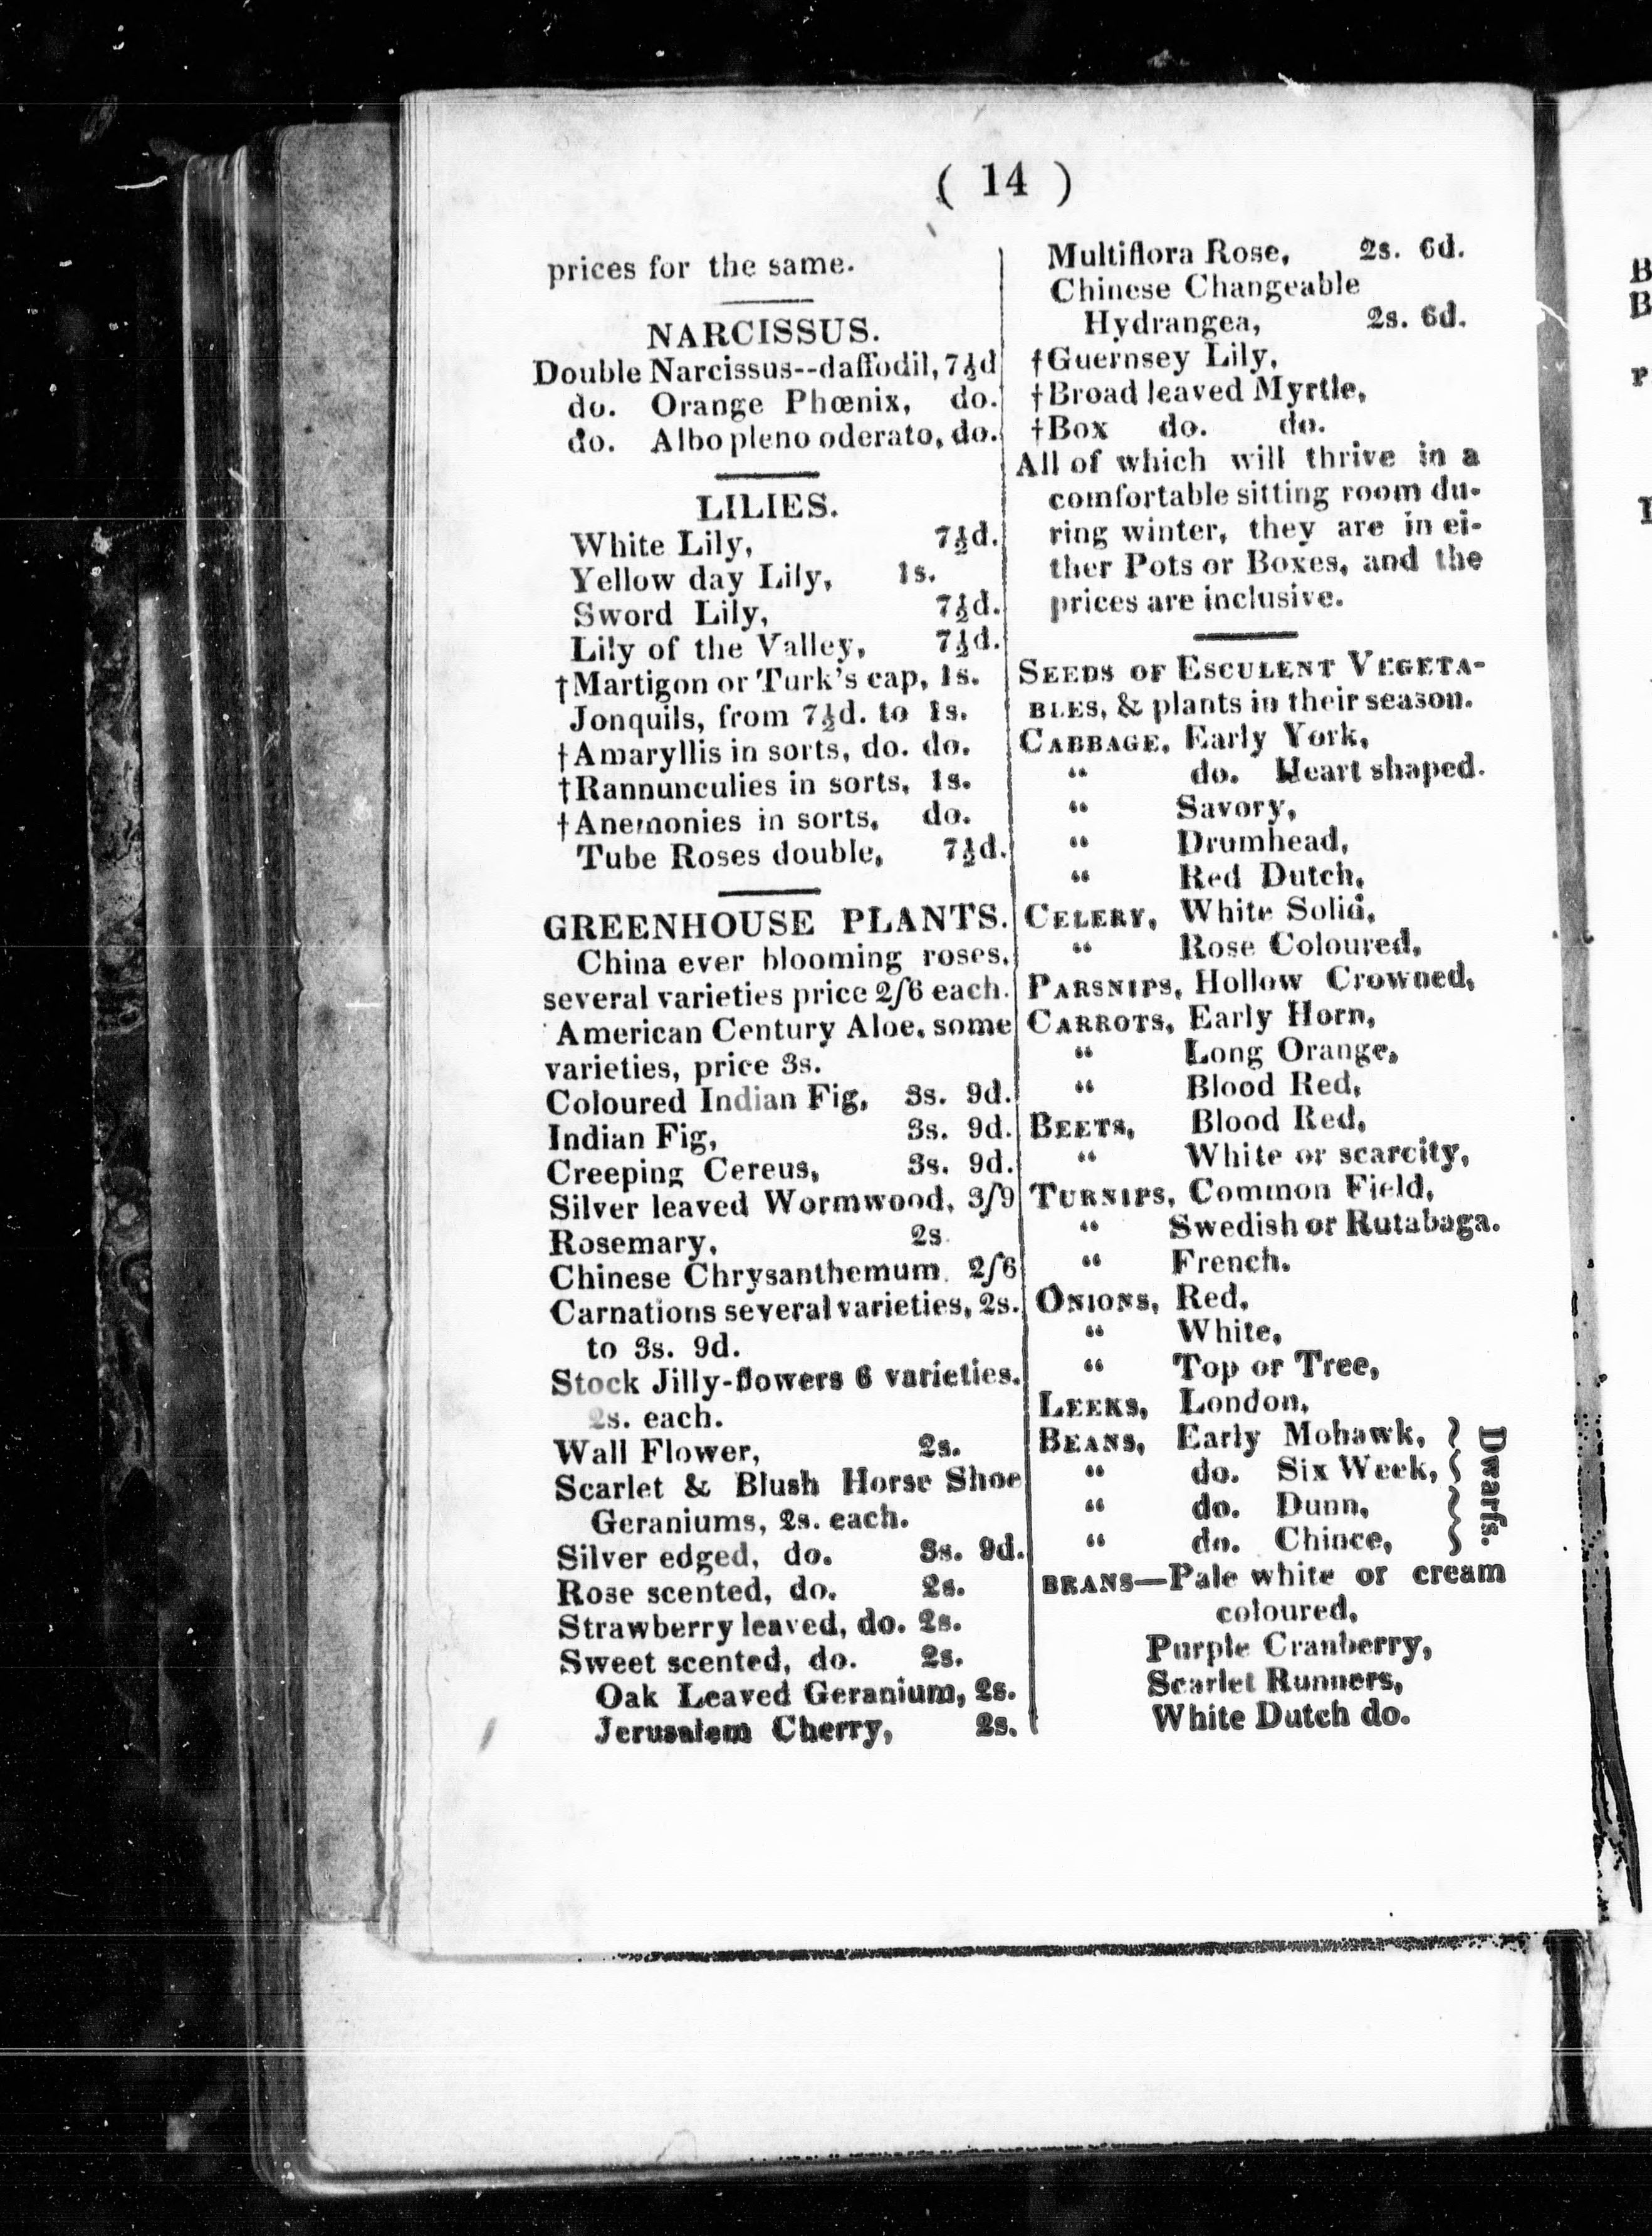 ( 14 )
prices for the same.
NARCISSUS.
Double Narcissus--daffodil, 7½d
do. Orange Phœnix, do.
do. Albo pleno oderato, do.
LILIES.
White Lily, 7½d.
Yellow day Lily, 1s.
Sword Lily, 7½d.
Lily of the Valley, 7½d.
†Martigon or Turk's cap, 1s.
Jonquils, from 7½d. to 1s.
†Amaryllis in sorts, do. do.
†Rannunculies in sorts, 1s.
†Anemonies in sorts, do.
Tube Roses double, 7½d.
GREENHOUSE PLANTS.
China ever blooming roses,
several varieties price 2ſ6 each.
American Century Aloe, some
varieties, price 3s.
Coloured Indian Fig, 3s. 9d.
Indian Fig, 3s. 9d.
Creeping Cereus, 3s. 9d.
Silver leaved Wormwood, 3ſ9
Rosemary, 2s.
Chinese Chrysanthemum, 2ſ6
Carnations several varieties, 2s.
to 3s. 9d.
Stock Jilly-flowers 6 varieties.
2s. each.
Wall Flower, 2s.
Scarlet & Blush Horse Shoe
Geraniums, 2s. each.
Silver edged, do. 3s. 9d.
Rose scented, do. 2s.
Strawberry leaved, do. 2s.
Sweet scented, do. 2s.
Oak Leaved Geranium, 2s.
Jerusalem Cherry, 2s.
Multiflora Rose, 2s. 6d.
Chinese Changeable
Hydrangea, 2s. 6d.
†Guernsey Lily,
†Broad leaved Myrtle,
†Box do. do.
All of which will thrive in a
comfortable sitting room du-
ring winter, they are in ei-
ther Pots or Boxes, and the
prices are inclusive.
SEEDS OF ESCULENT VEGETA-
BLES, & plants in their season.
CABBAGE, Early York,
“ do. Heart shaped.
“ Savory,
“ Drumhead,
“ Red Dutch,
CELERY, White Solid,
“ Rose Coloured,
PARSNIPS, Hollow Crowned,
CARROTS, Early Horn,
“ Long Orange,
“ Blood Red,
BEETS, Blood Red,
“ White or scarcity,
TURNIPS, Common Field,
“ Swedish or Rutabaga.
“ French.
ONIONS, Red,
“ White,
“ Top or Tree,
LEEKS, London,
BEANS, Early Mohawk,
“ do. Six Week,
“ do. Dunn,
“ do. Chince,
Dwarfs.
BEANS—Pale white or cream
coloured,
Purple Cranberry,
Scarlet Runners,
White Dutch do.